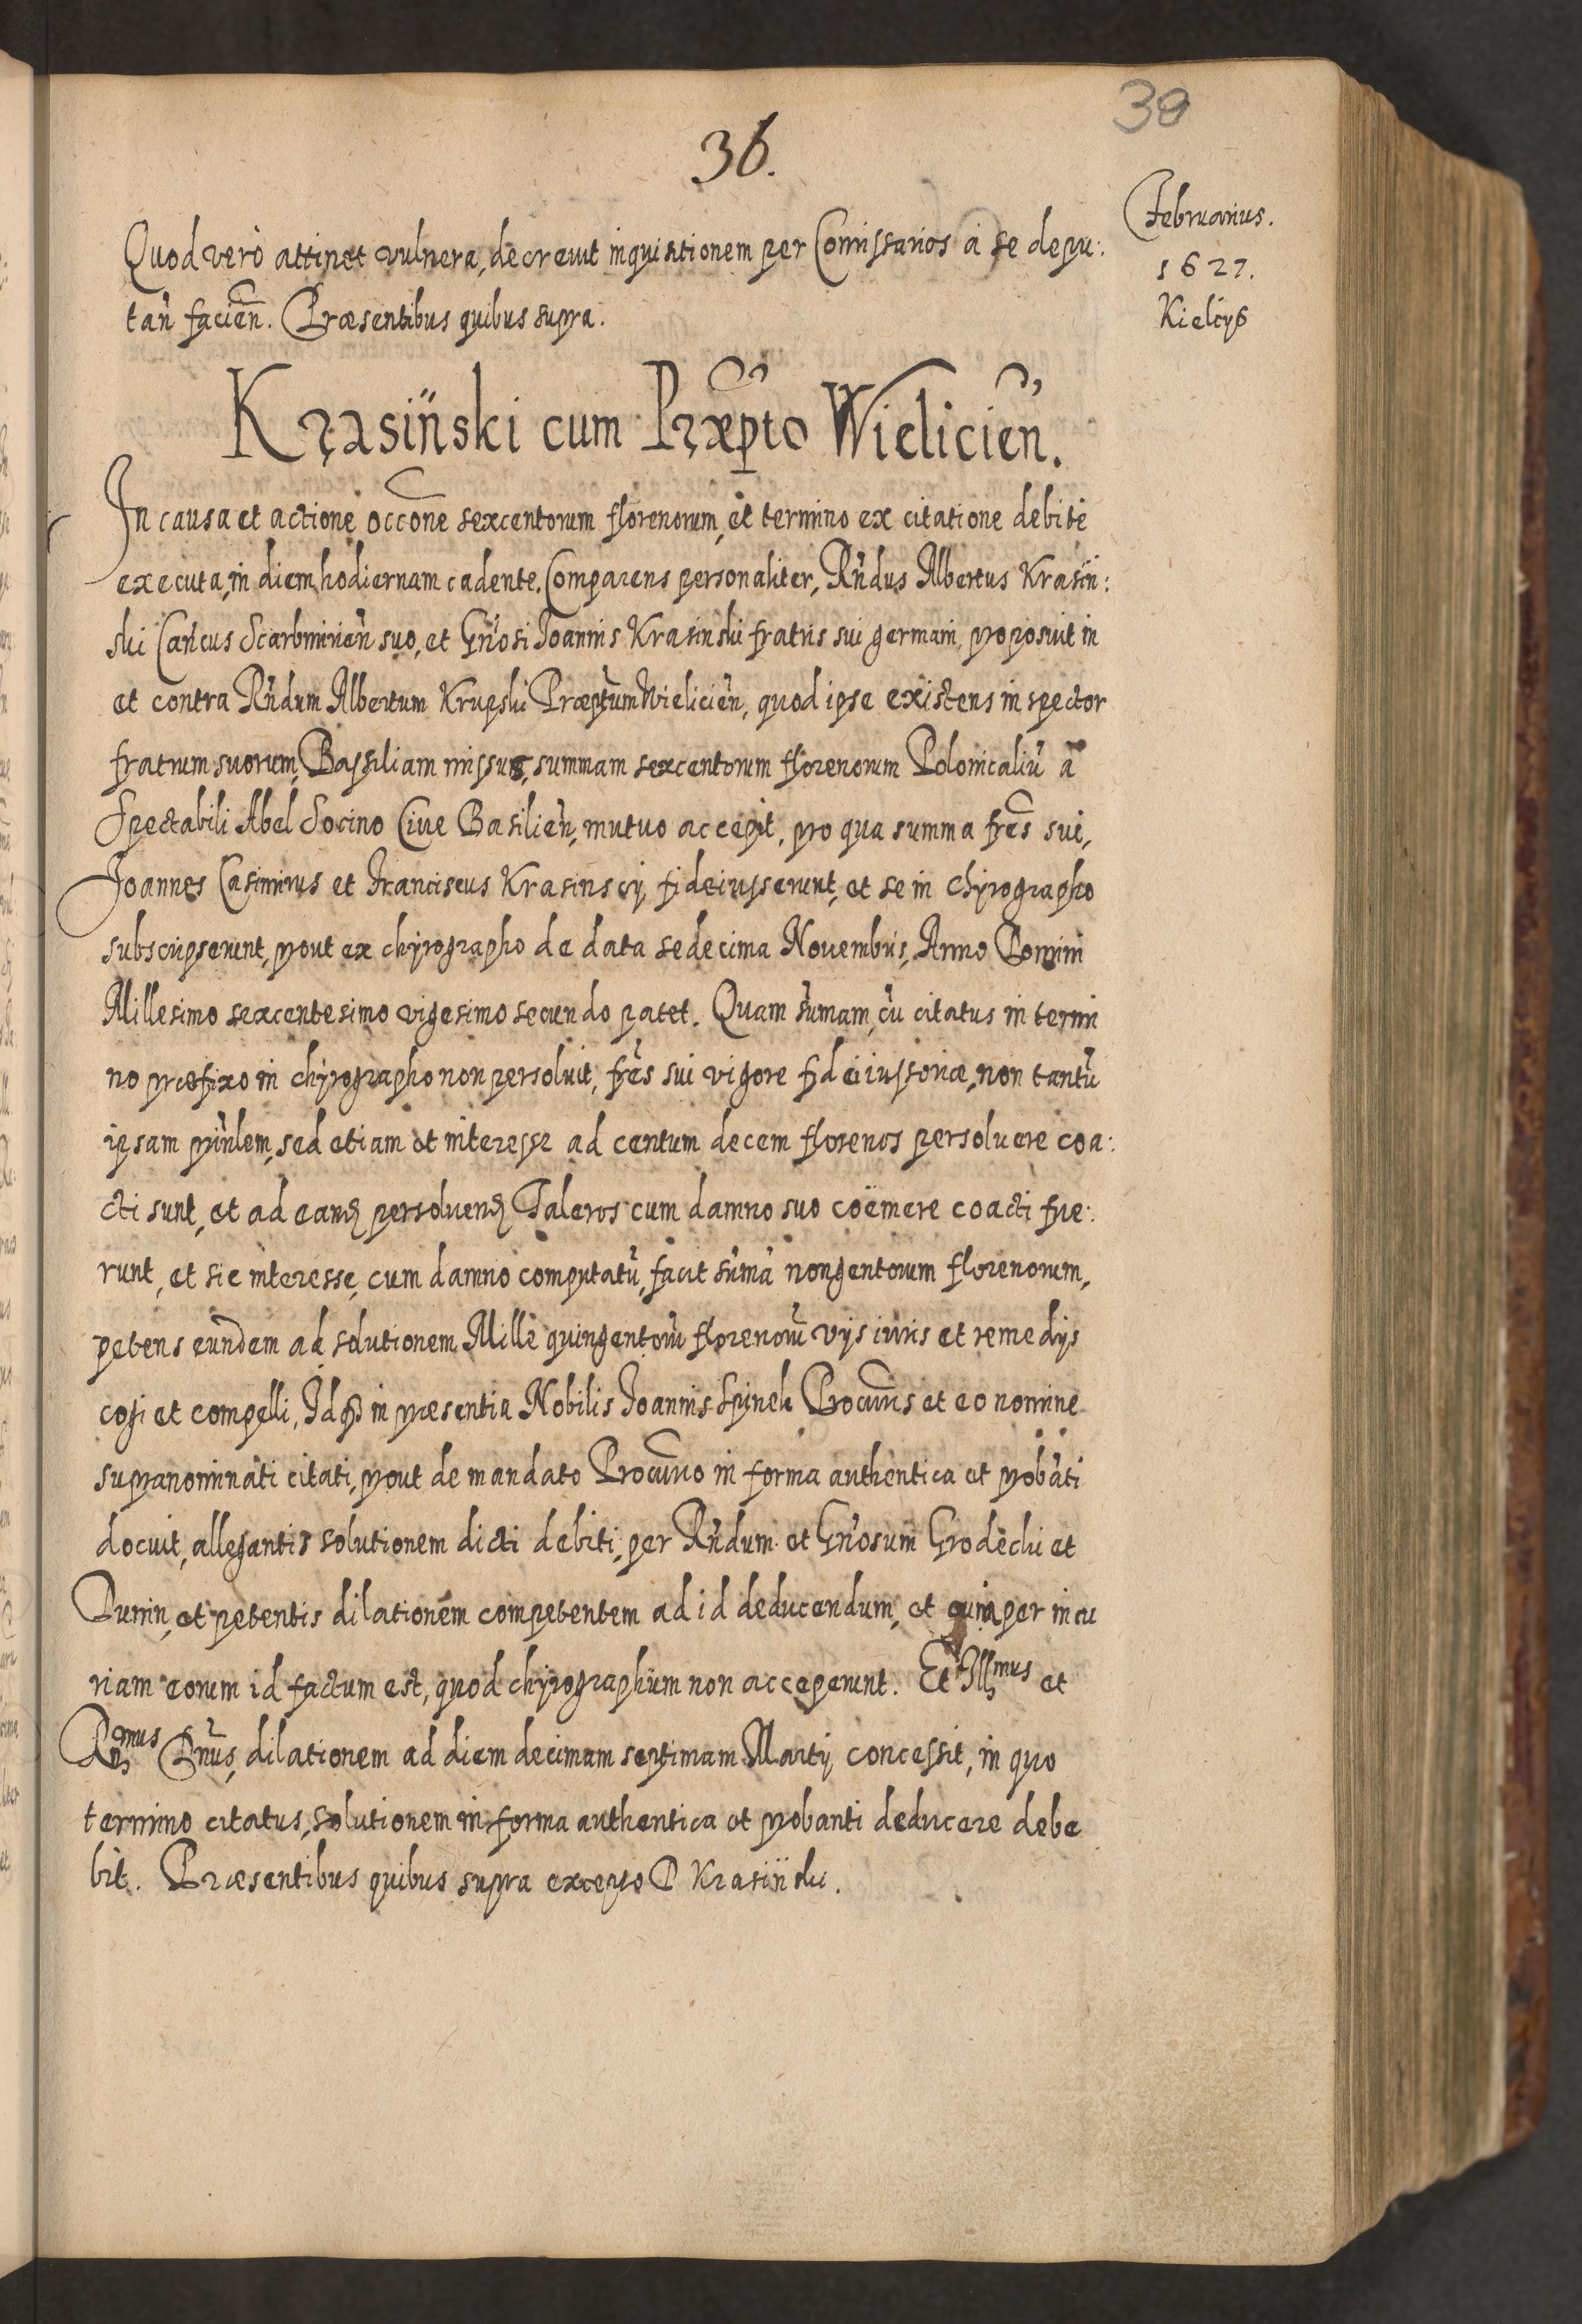 36.
39
Februarius.
1627.
Kielcys
Quod vero attinet vulnera, decrevit inquisitionem per Comissarios a se depu:
tan̄ facien̄. Præsentibus quibus supra.
Krasiński cum Præpto Wielicien̄.
In causa et actione occōne sexcentorum florenorum, et termino ex citatione debite
executa, in diem hodiernam cadente. Comparens personaliter, Rn̄dus Albertus Krasiń:
ski Cancus Scarbimirien̄ suo, et Gn̄osi Joannis Krasinski fratris sui germani, proposuit in
et contra Rn̄dum Albertum Krupski Præptum Wielicien̄, quod ipse existens inspector
fratrum suorum, Bassiliam missus, summam sexcentorum florenorum Polonicaliū a
Spectabili Abel Socino Cive Basilien̄, mutuo accepit, pro qua summa fr̄es sui,
Joannes Casimirus et Franciscus Krasinscy, fideiusserunt, et se in chyrographo
subscripserunt, prout ex chyrographo de data sedecima Novembris, Anno Domini
Millesimo sexcentesimo vigesimo secundo patet. Quam sūmam, cū citatus in termi
no præfixo in chyrographo non persolvit, fr̄es sui vigore fideiussoriæ, non tantū
ipsam prin̄lem, sed etiam et interesse ad centum decem florenos persolvere coa:
cti sunt, et ad eand persoluend Taleros cum damno suo coëmere coacti fue:
runt, et sic interesse, cum damno computatū, facit sūmā nongentorum florenorum,
petens eundem ad solutionem Mille quingentorū florenorū vijs iuris et remedijs
cogi et compelli, Idq in præsentia Nobilis Joannis Spinek Procuris et eo nomine
supranominati citati, prout de mandato Procurio in forma authentica et probāti
docuit, allegantis solutionem dicti debiti, per Rn̄dum et Gn̄osum Grodecki et
Dunin, et petentis dilationem competentem ad id deducendum, et quia per incu
riam eorum id factum est, quod chyrographum non acceperunt. Et Illmus et
Rn̄mus Dn̄us, dilationem ad diem decimam septimam Martij concessit, in quo
termino citatus, solutionem in forma authentica et probanti deducere debe
bit. Præsentibus quibus supra excepto D Krasiński.